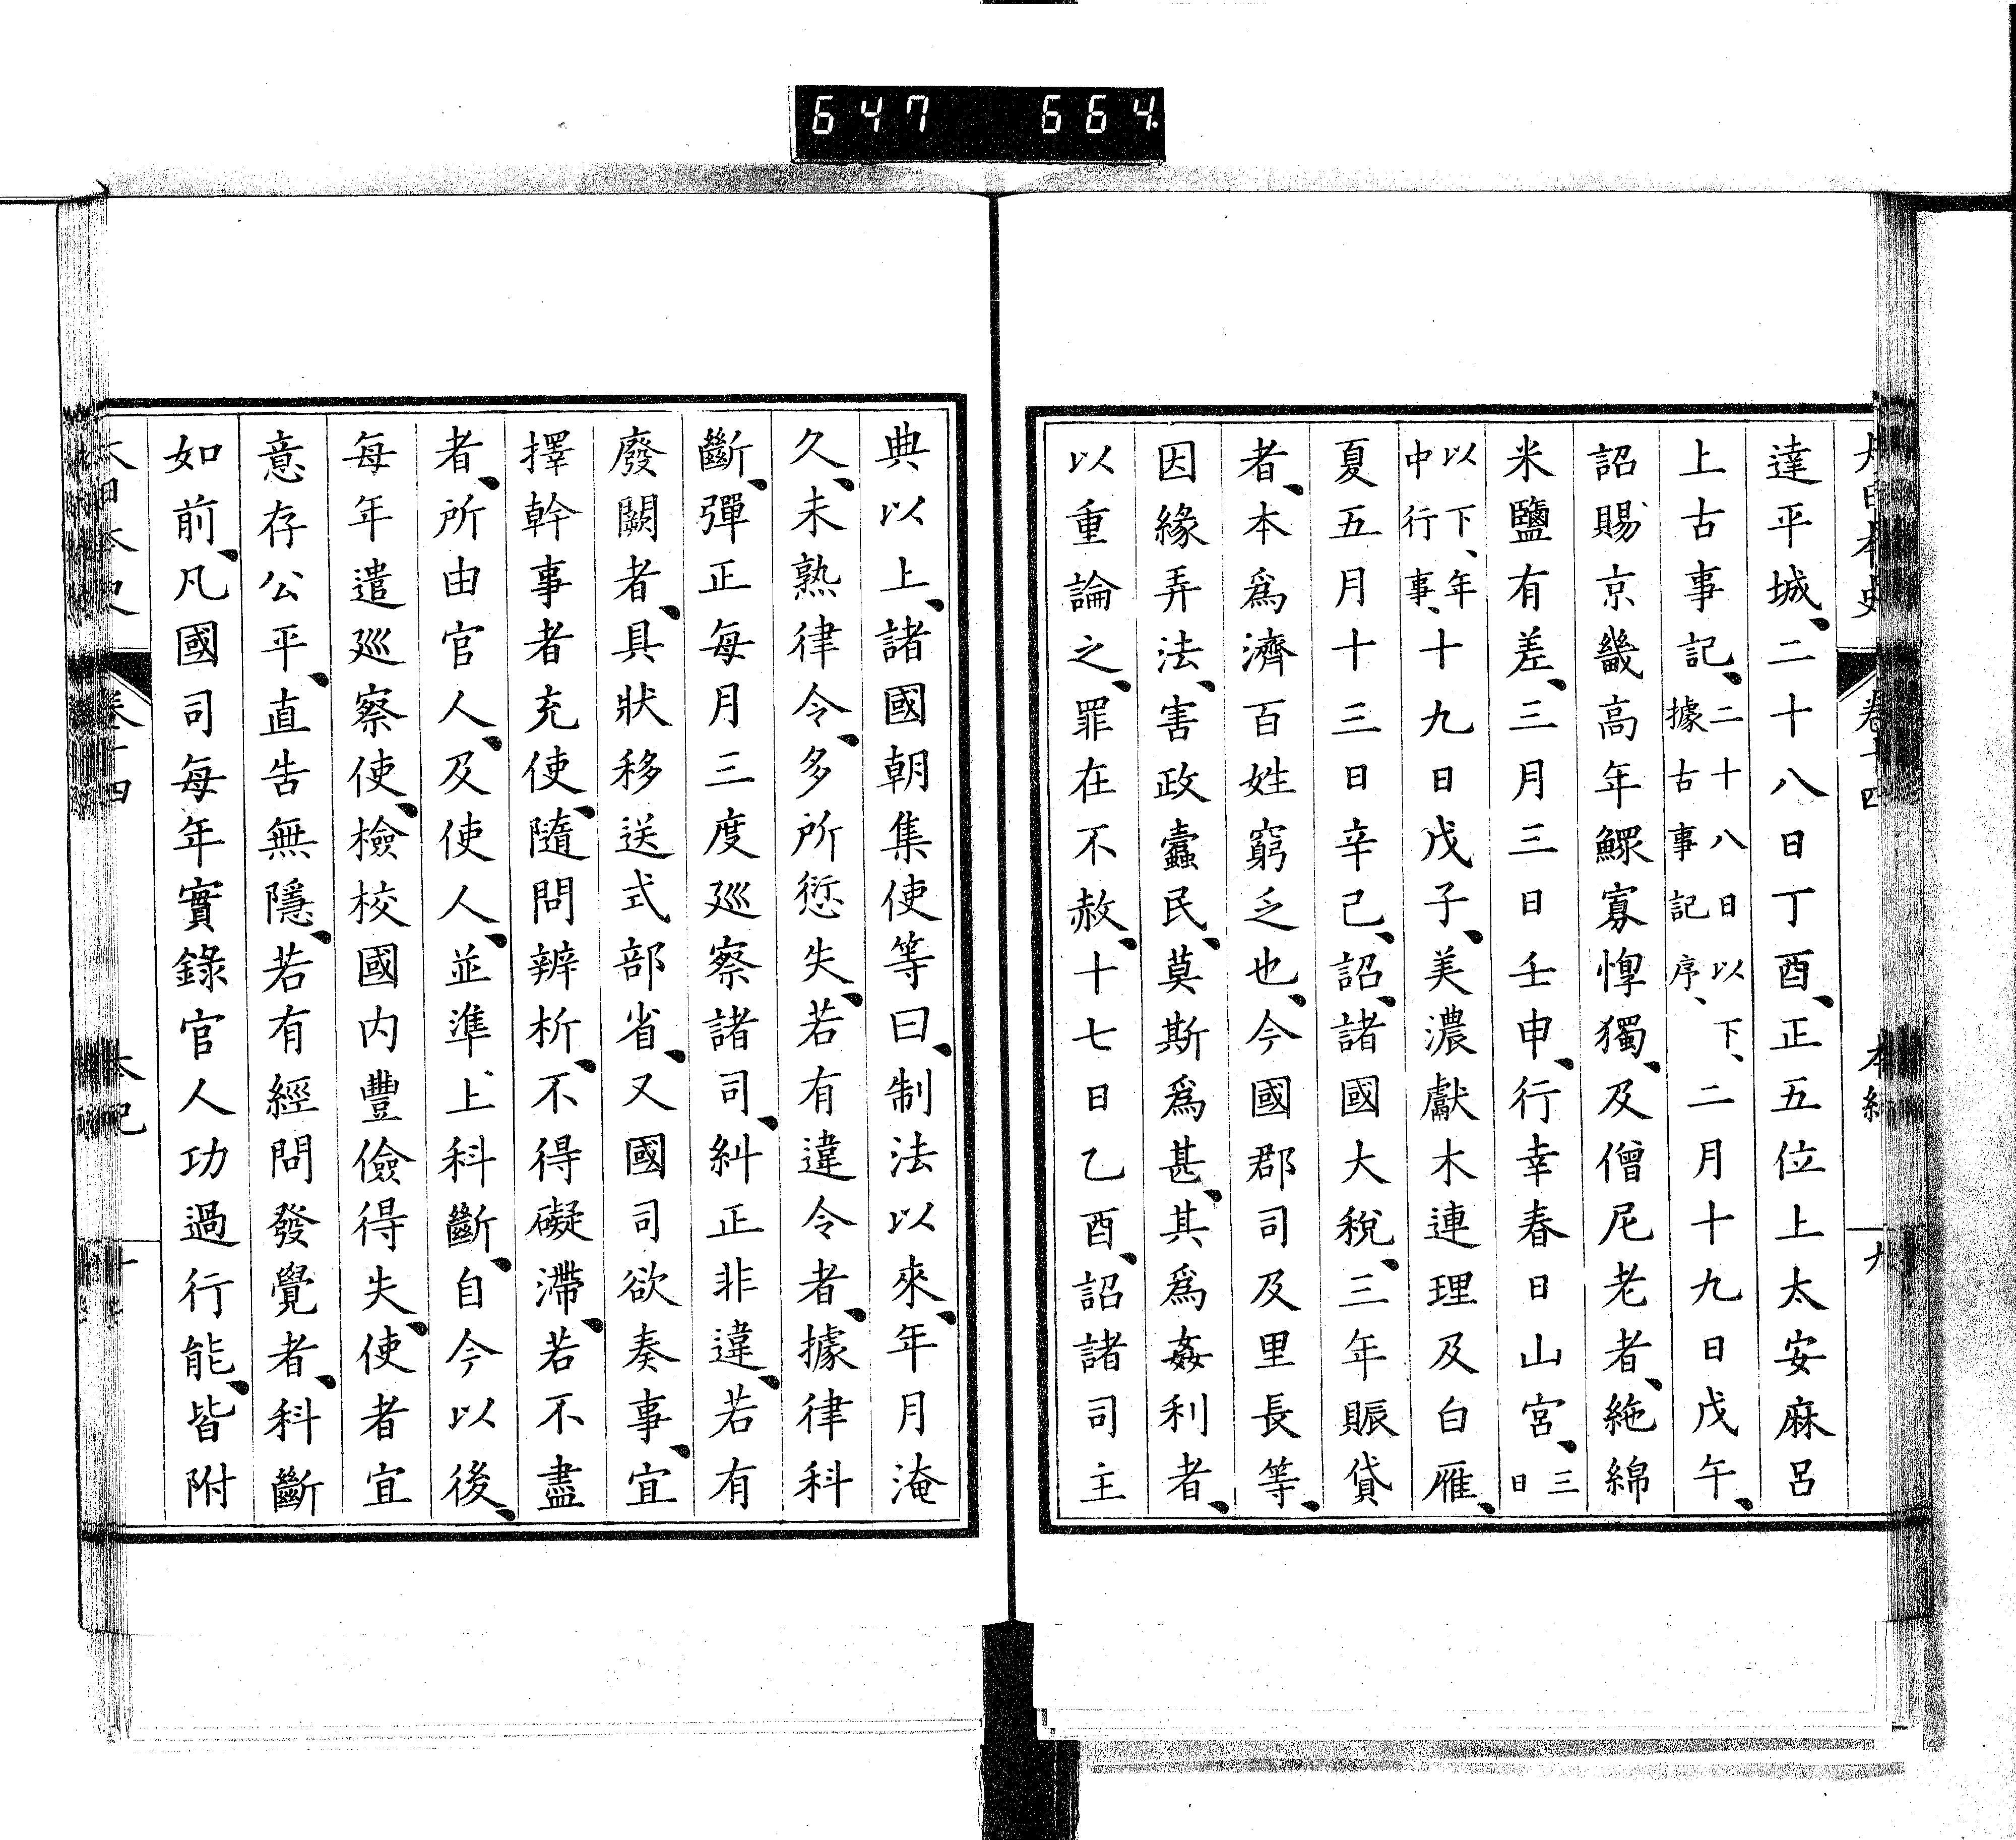 647 664
大日本史 卷十四 本紀 九
達平城、二十八日丁酉、正五位上太安麻呂
上古事記、二十八日以下、據古事記序、二月十九日戊午、
詔賜京畿高年鰥寡惸獨、及僧尼老者、絁綿
米鹽有差、三月三日壬申、行幸春日山宮、三日
以下、年中行事、十九日戊子、美濃獻木連理及白雁、
夏五月十三日辛巳、詔、諸國大稅、三年賑貸
者、本爲濟百姓窮乏也、今國郡司及里長等、
因緣弄法、害政蠹民、莫斯爲甚、其爲姦利者、
以重論之、罪在不赦、十七日乙酉、詔諸司主
典以上、諸國朝集使等曰、制法以來、年月淹
久、未熟律令、多所愆失、若有違令者、據律科
斷、彈正每月三度巡察諸司、糾正非違、若有
廢闕者、具狀移送式部省、又國司欲奏事、宜
擇幹事者充使、隨問辨析、不得礙滯、若不盡
者、所由官人、及使人、並準上科斷、自今以後、
每年遣巡察使、檢校國內豐儉得失、使者宜
意存公平、直告無隱、若有經問發覺者、科斷
如前、凡國司每年實錄官人功過行能、皆附
大日本史 卷十四 本紀 十